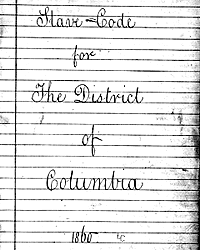 Slave-Code
for
The District
of
Columbia
1860.